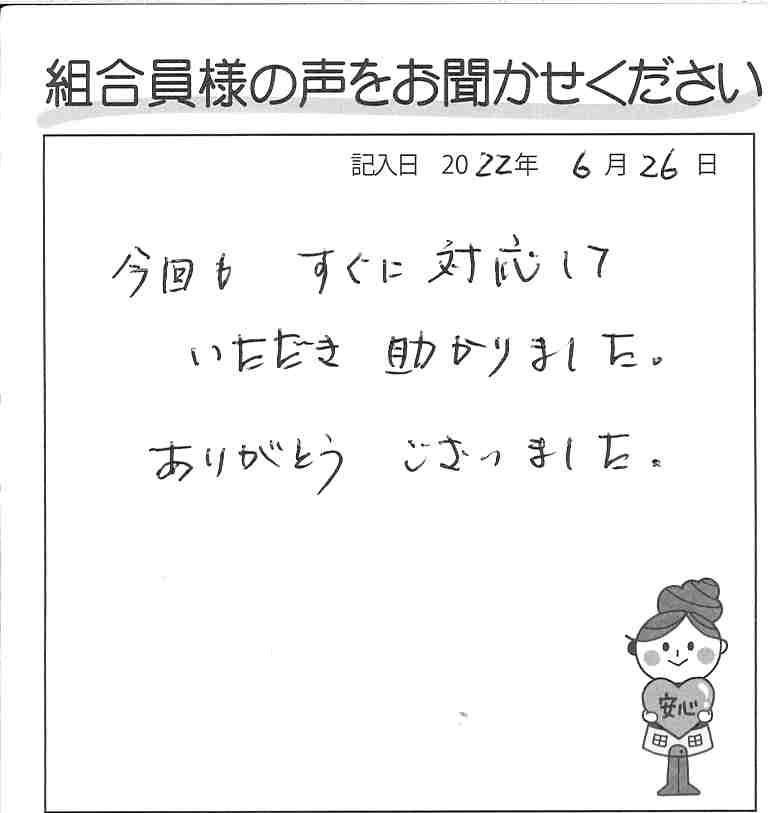 組合員様の声をお聞かせください
記入日 2022年 6月26日
今回も すぐに対応して
いただき 助かりました。
ありがとう ございました。
安心